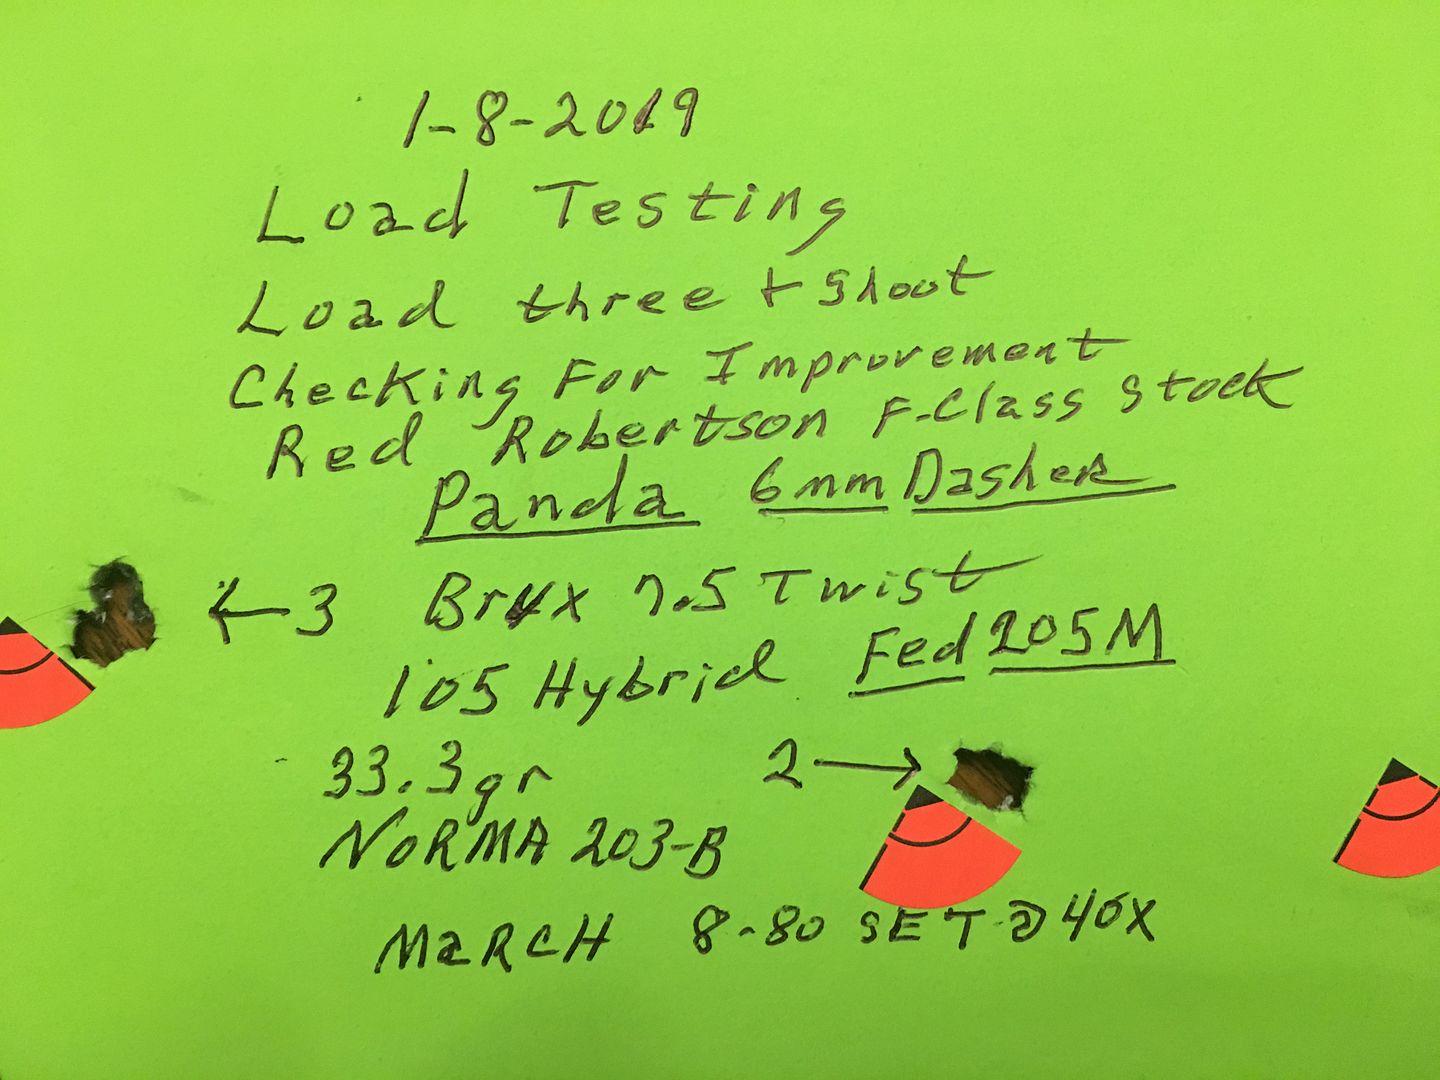 1-8-2019
Load Testing
Load three + Shoot
Checking For Improvement
Red Robertson F-Class Stock
Panda 6mm Dasher
←3 Brux 7.5 Twist
105 Hybrid Fed 205M
33.3gr 2→
NORMA 203-B
MaRCH 8-80 SET @ 40X